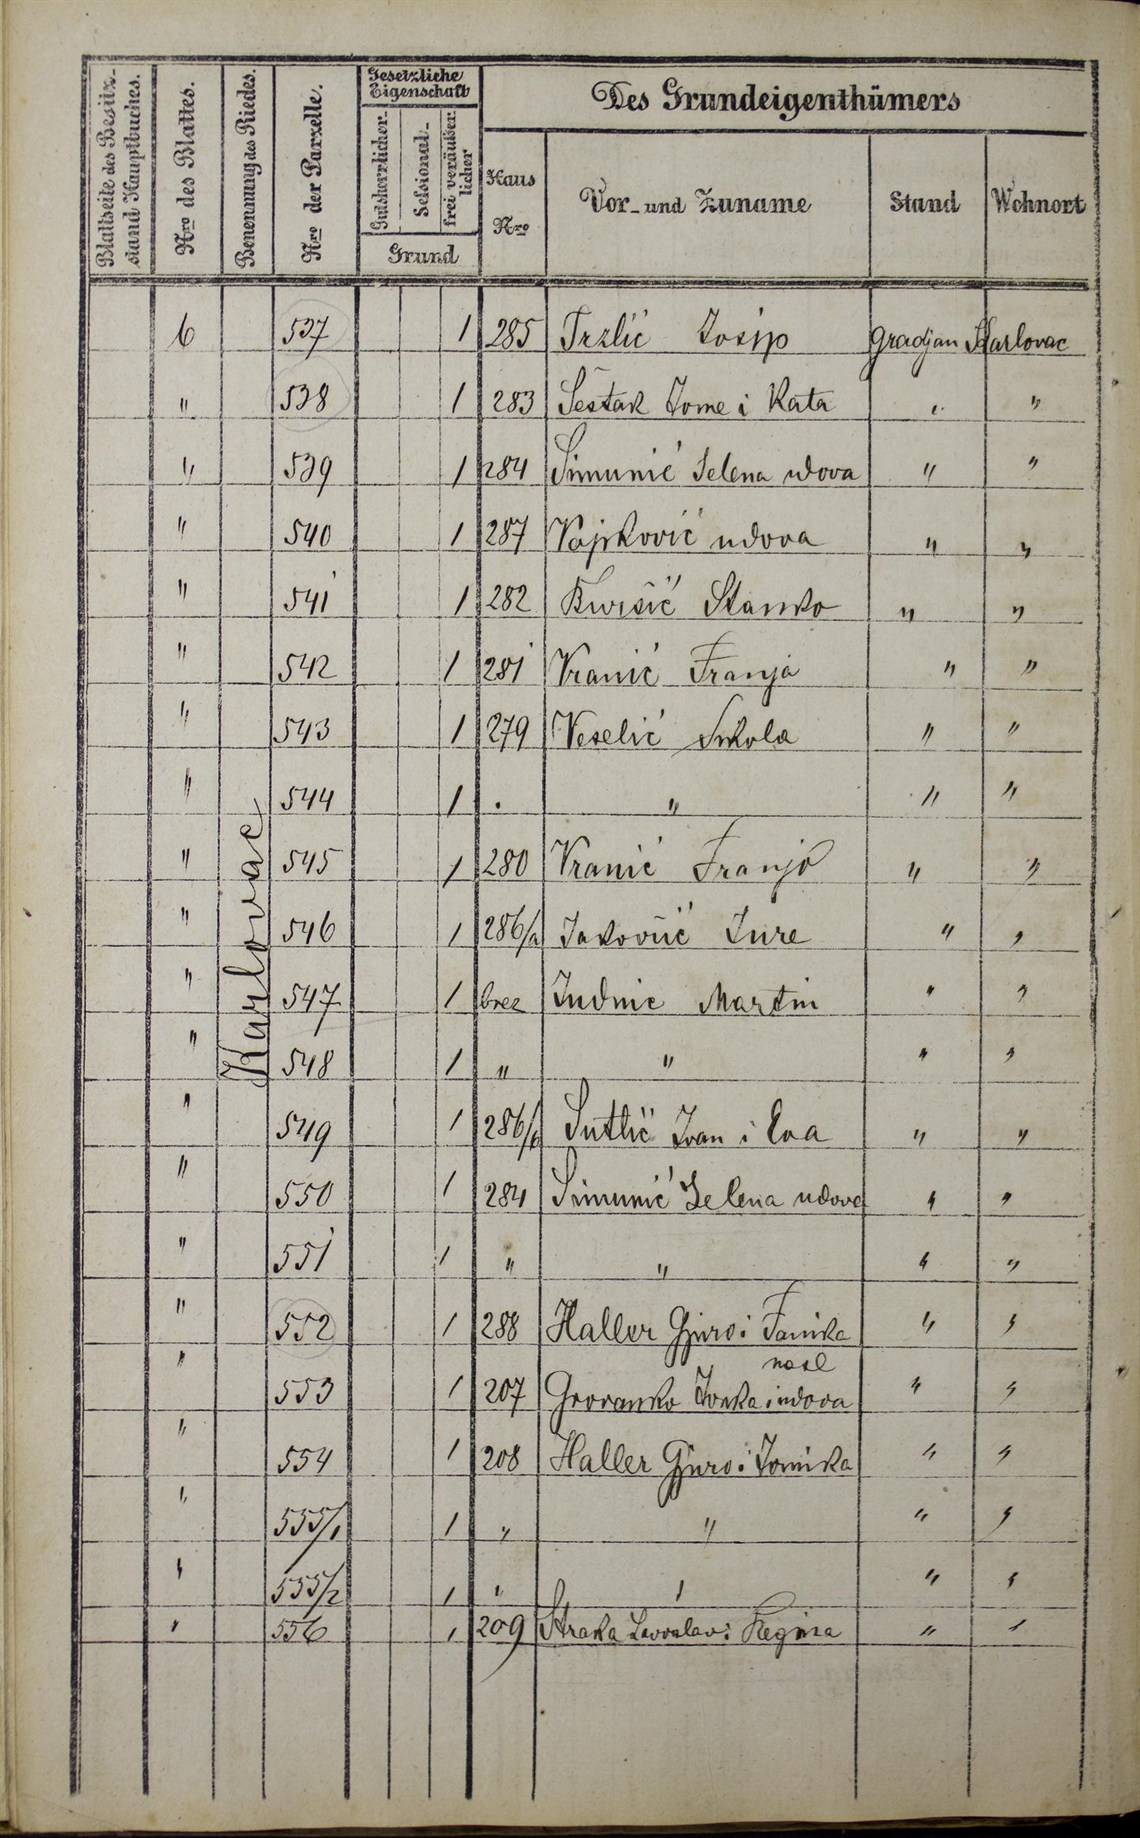 Blattseite des Besitz-stand Hauptbuches.
Nro des Blattes.
Benennung des Riedes.
Nro der Parzelle.
Gesetzliche Eigenschaft
Gutsherrlicher
Sessional-
frei veräußerlicher
Grund
Des Grundeigenthümers
Haus Nro
Vor- und Zuname
Stand
Wohnort
Karlovac
6 537 1 285 Trzlić Josip gradjan Karlovac
" 538 1 283 Šestak Tome i Kata " "
" 539 1 284 Simunić Jelena udova " "
" 540 1 287 Vajković udova " "
" 541 1 282 Stanko " "
" 542 1 281 Vranić Franja " "
" 543 1 279 Veselić Nikola " "
" 544 1 . " " "
" 545 1 280 Vranić Franjo " "
" 546 1 286/a Jakovčić Jure " "
" 547 1 brez Judnic Martin " "
" 548 1 " " " "
" 549 1 286/b Sutlić Ivan i Eva " "
" 550 1 284 Simunić Jelena udova " "
" 551 1 " " " "
" 552 1 288 Haller Gjuro i Tomika " "
nasl
" 553 1 207 Janka i udova " "
" 554 1 208 Haller Gjuro i Tomika " "
" 555/1 1 " " " "
" 555/2 1 " " " "
" 556 1 209 Straka Lavoslav i Regina " "